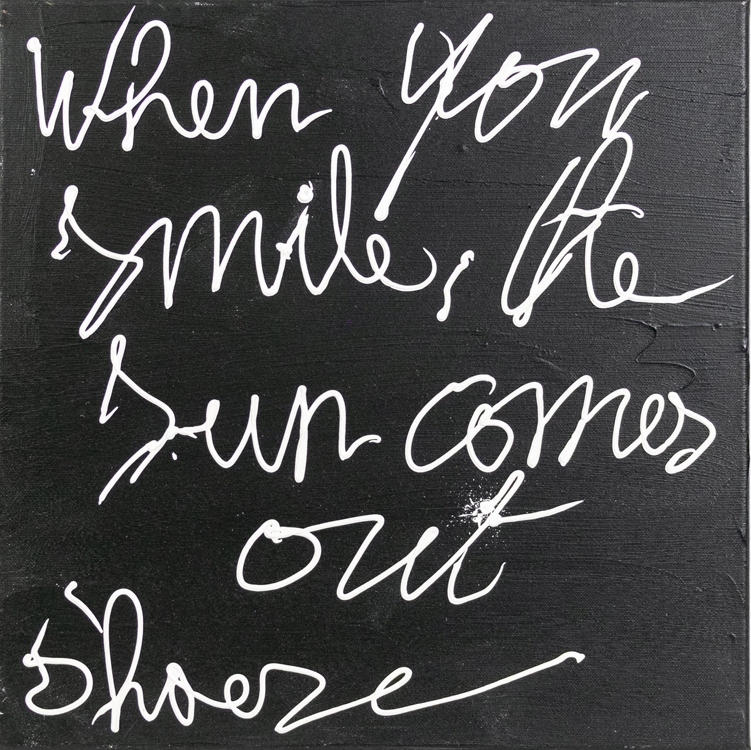 When you
smile, the
sun comes
out